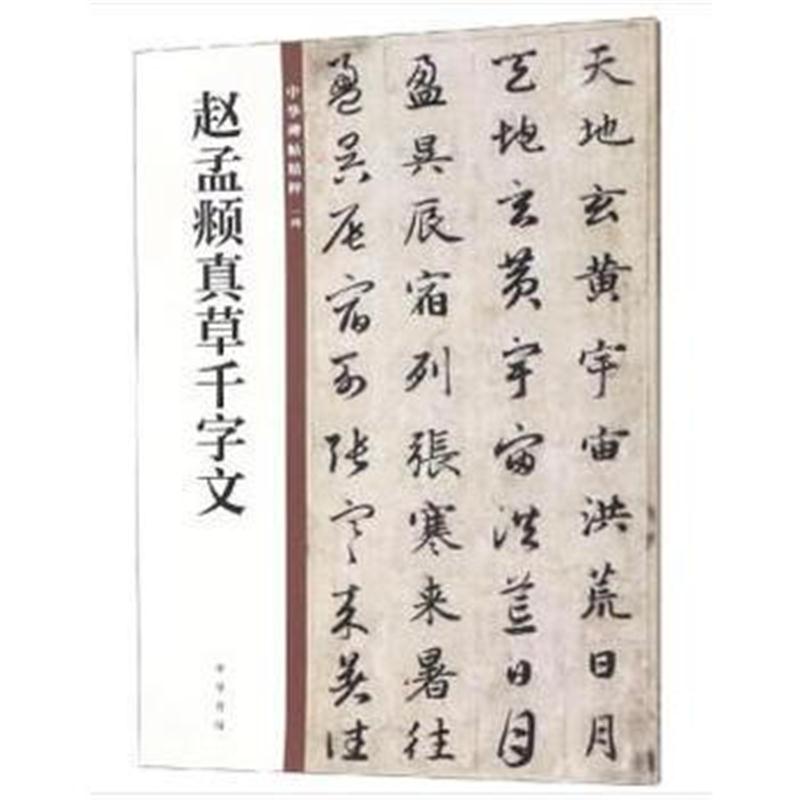 天地玄黄宇宙洪荒日月
天地玄黄宇宙洪荒日月
盈昃辰宿列張寒来暑往
盈昃辰宿列張寒来暑往
中华碑帖精粹
赵孟頫真草千字文
中华书局